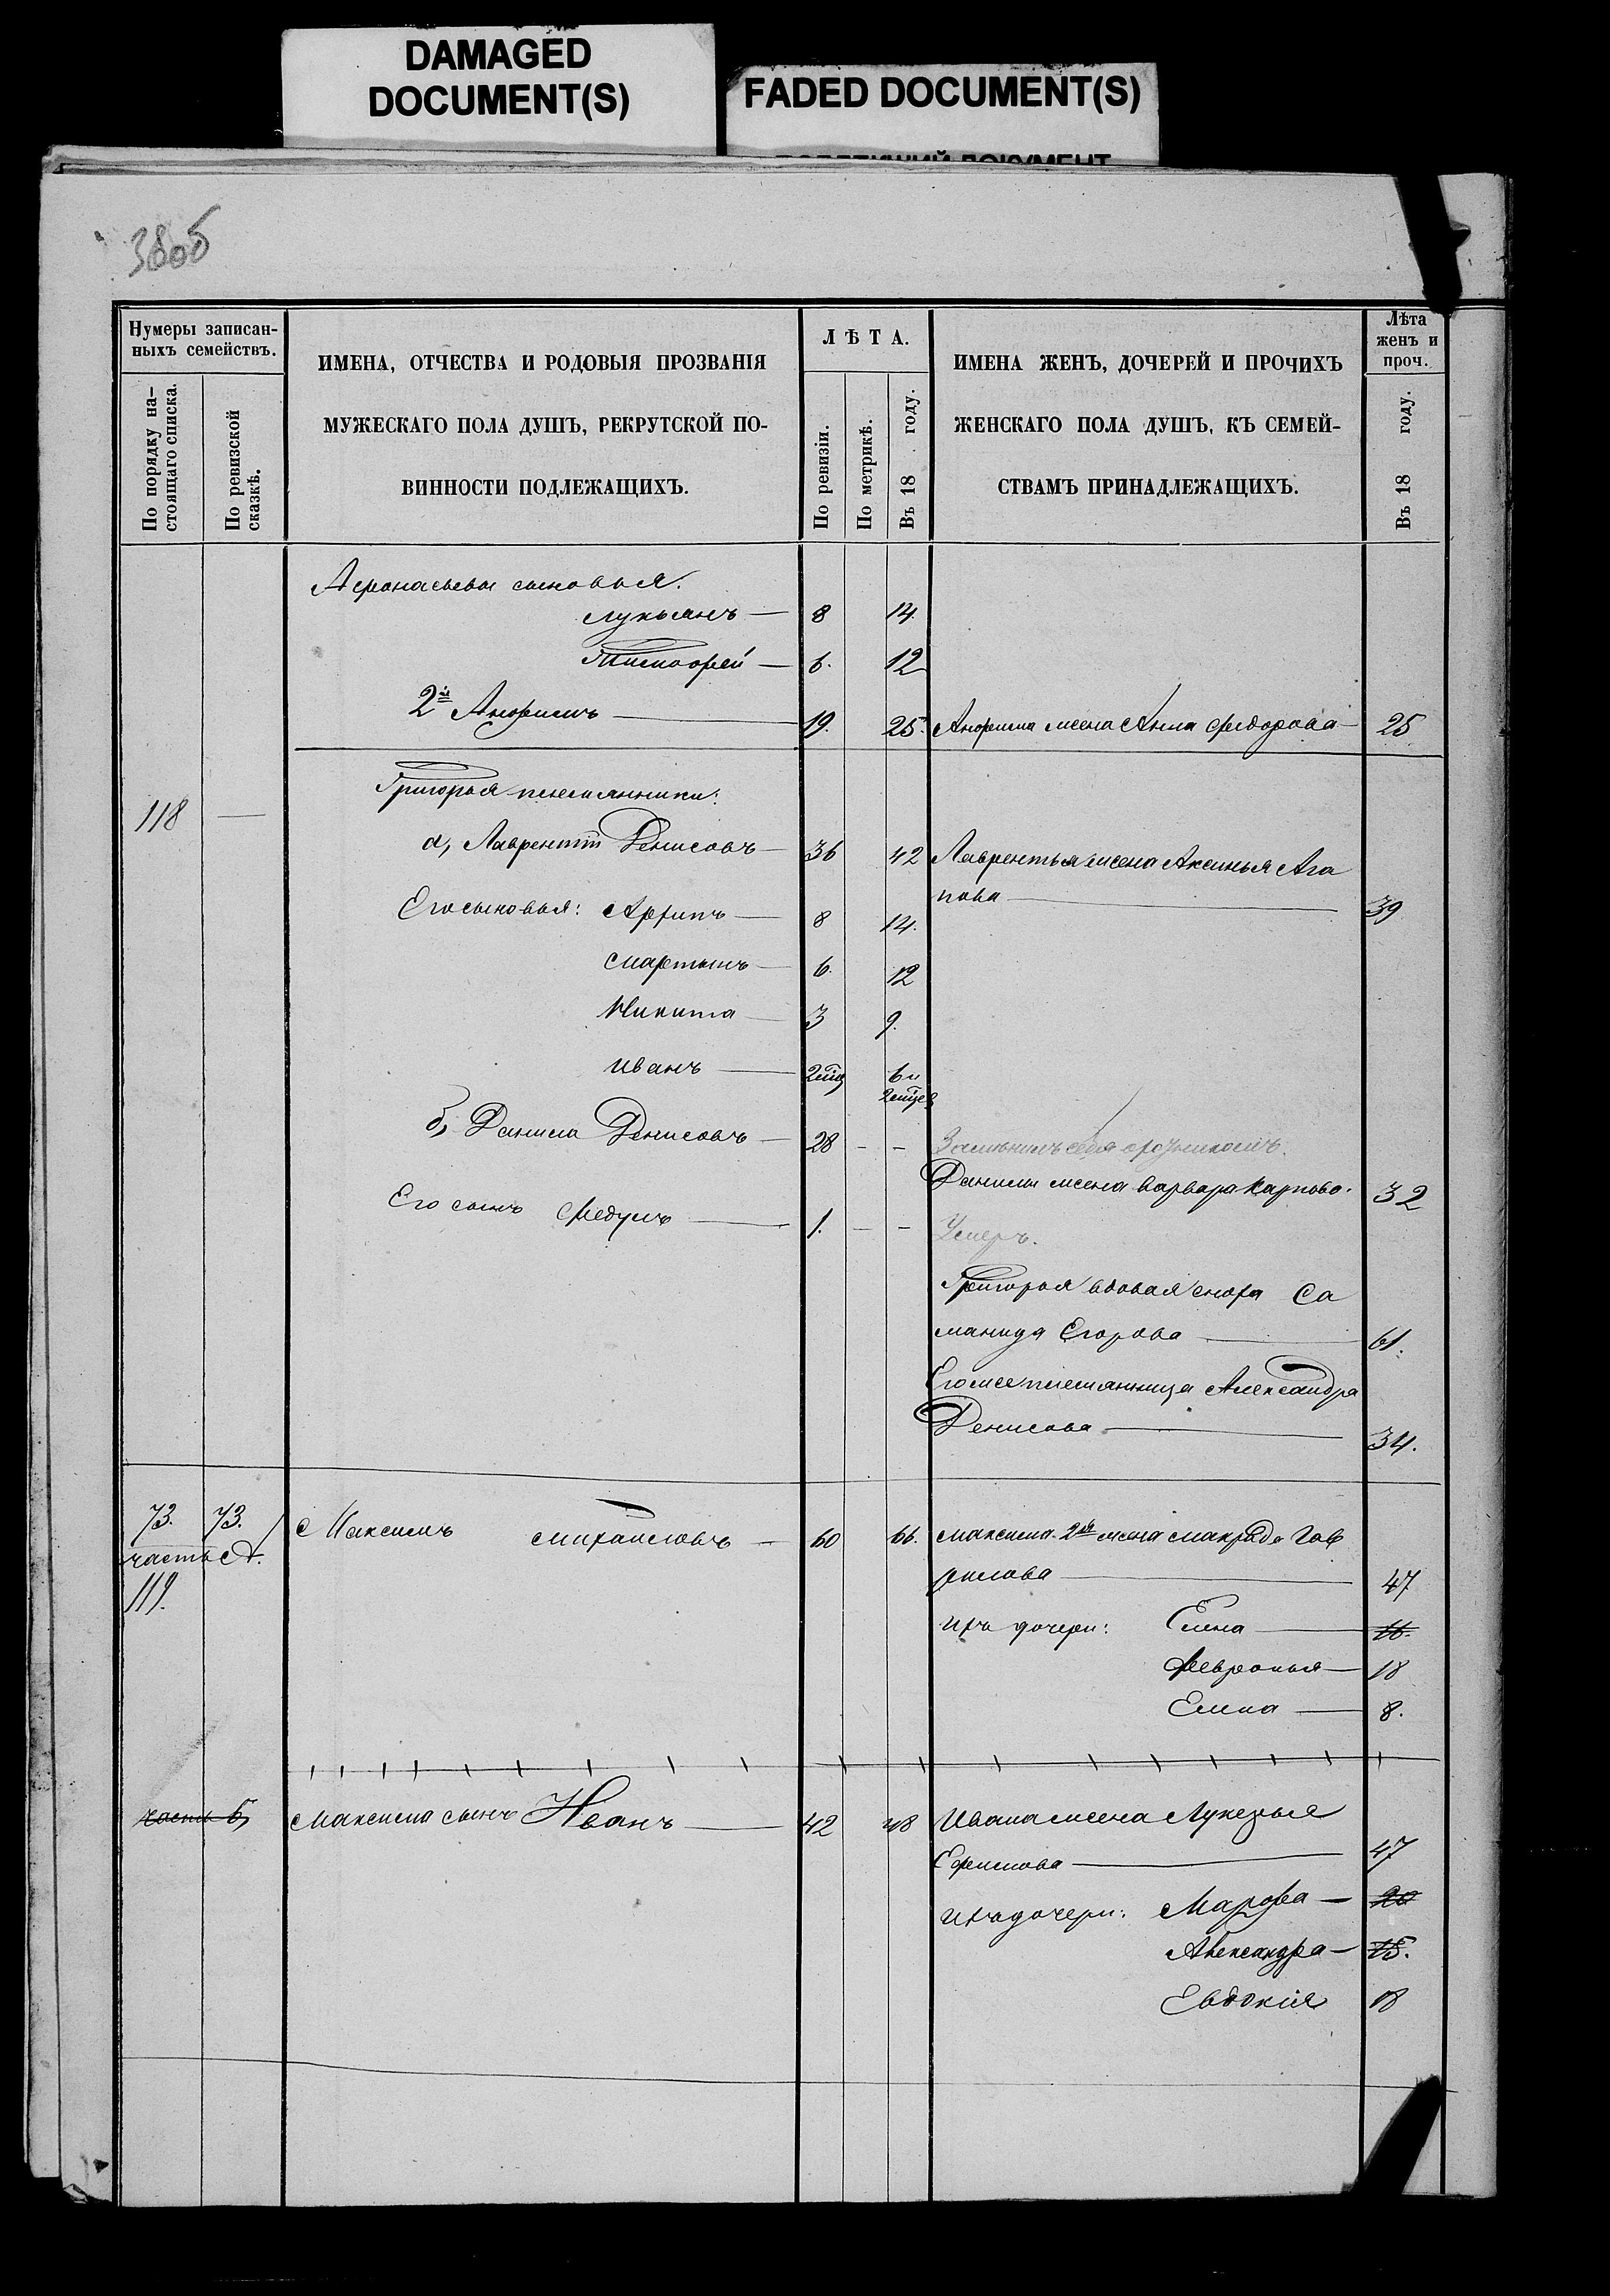 DAMAGED
DOCUMENT(S)
FADED DOCUMENT(S)
38об
Нумеры записан-
ныхъ семействъ.
По порядку на-
стоящаго списка.
По ревизской
сказкѣ.
ИМЕНА, ОТЧЕСТВА И РОДОВЫЯ ПРОЗВАНІЯ
МУЖЕСКАГО ПОЛА ДУШЪ, РЕКРУТСКОЙ ПО-
ВИННОСТИ ПОДЛЕЖАЩИХЪ.
ЛѢТА.
По ревизіи.
По метрикѣ.
Въ 18 году.
ИМЕНА ЖЕНЪ, ДОЧЕРЕЙ И ПРОЧИХЪ
ЖЕНСКАГО ПОЛА ДУШЪ, КЪ СЕМЕЙ-
СТВАМЪ ПРИНАДЛЕЖАЩИХЪ.
Лѣта
женъ и
проч.
Въ 18 году.
Афонасьевы сыновья.
Лукьянъ — 8 14.
Тимофей — 6. 12
2й Анофимъ — 19. 25. Анофима жена Анна Федорова — 25
118 — Григорья племянники:
а, Лаврентій Денисовъ — 36 42 Лаврентья жена Аксинья Ага
пова — 39
Его сыновья: Архипъ — 8 14.
Мартынъ — 6. 12
Никита — 3 9.
Иванъ — 2мц 6 и
2мцев
б, Данила Денисовъ — 28 - - Замѣнилъ себя
Данилы жена Варвара Карпова. 32
Его сынъ Федулъ — 1. - - Умеръ.
Григорья вдовая сноха Со
манида Егорова — 61.
Его же племянница Александра
Денисова — 34.
73. 73. Максимъ Михайловъ — 60 66. Максима 2я жена Макрида Гав
часть А.
119.
рилова — 47
Ихъ дочери: Елена — 16.
Февронья — 18
Елена — 8.
часть б, Максима сынъ Иванъ — 42 48 Ивана жена Лукерья
Ефимова — 47
Ихъ дочери: Марфа — 20
Александра — 15.
Евдокія 18